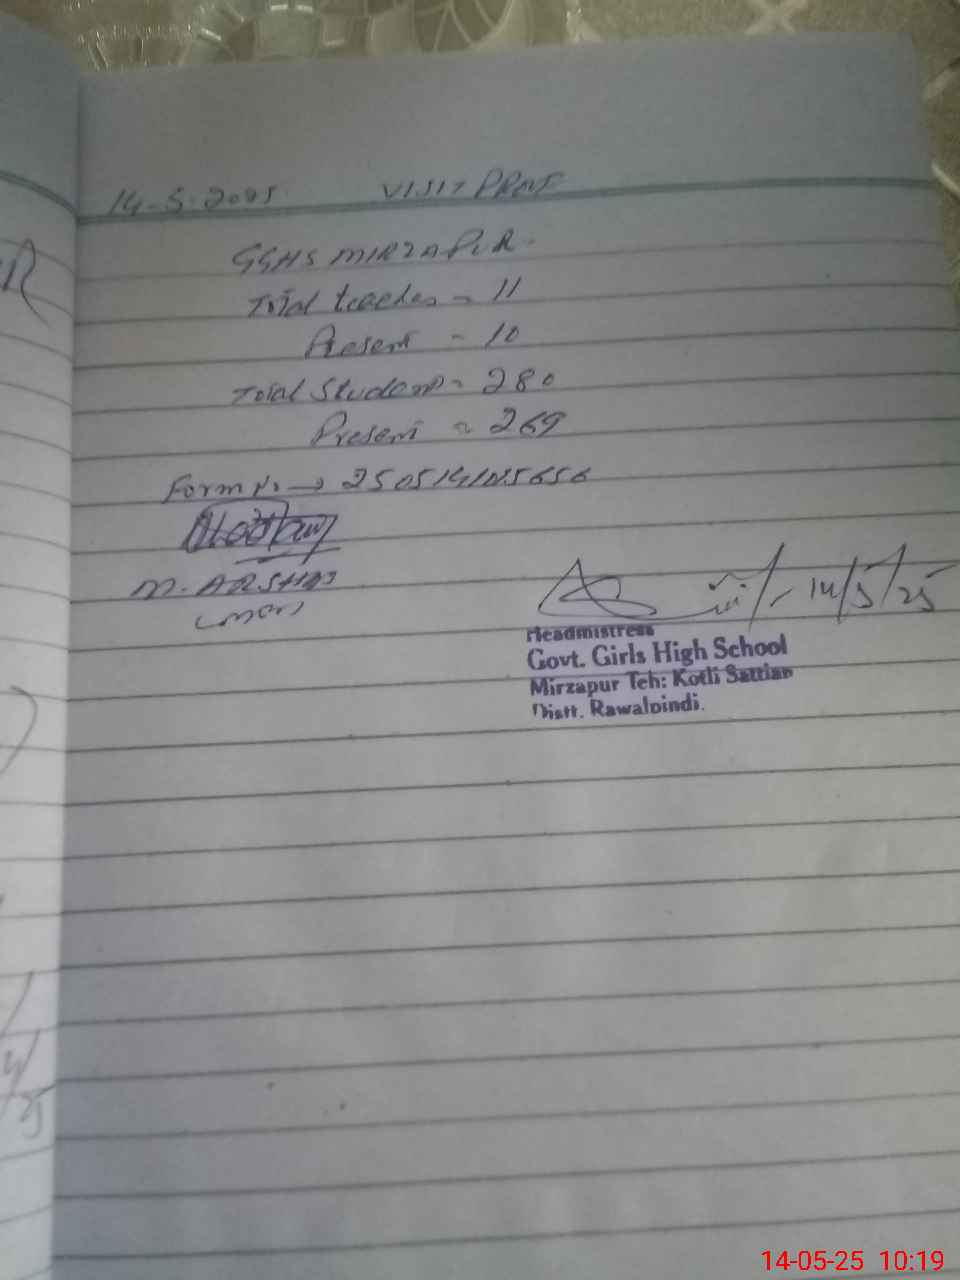 14-5-2025 VISIT PROF
GGHS MIRZAPUR.
Total teacher = 11
Present - 10
Total Student = 280
Present = 269
Form No →
M. ARSHAD
14/5/25
Headmistress
Govt. Girls High School
Mirzapur Teh: Kotli Sattian
Distt. Rawalpindi.
14-05-25 10:19